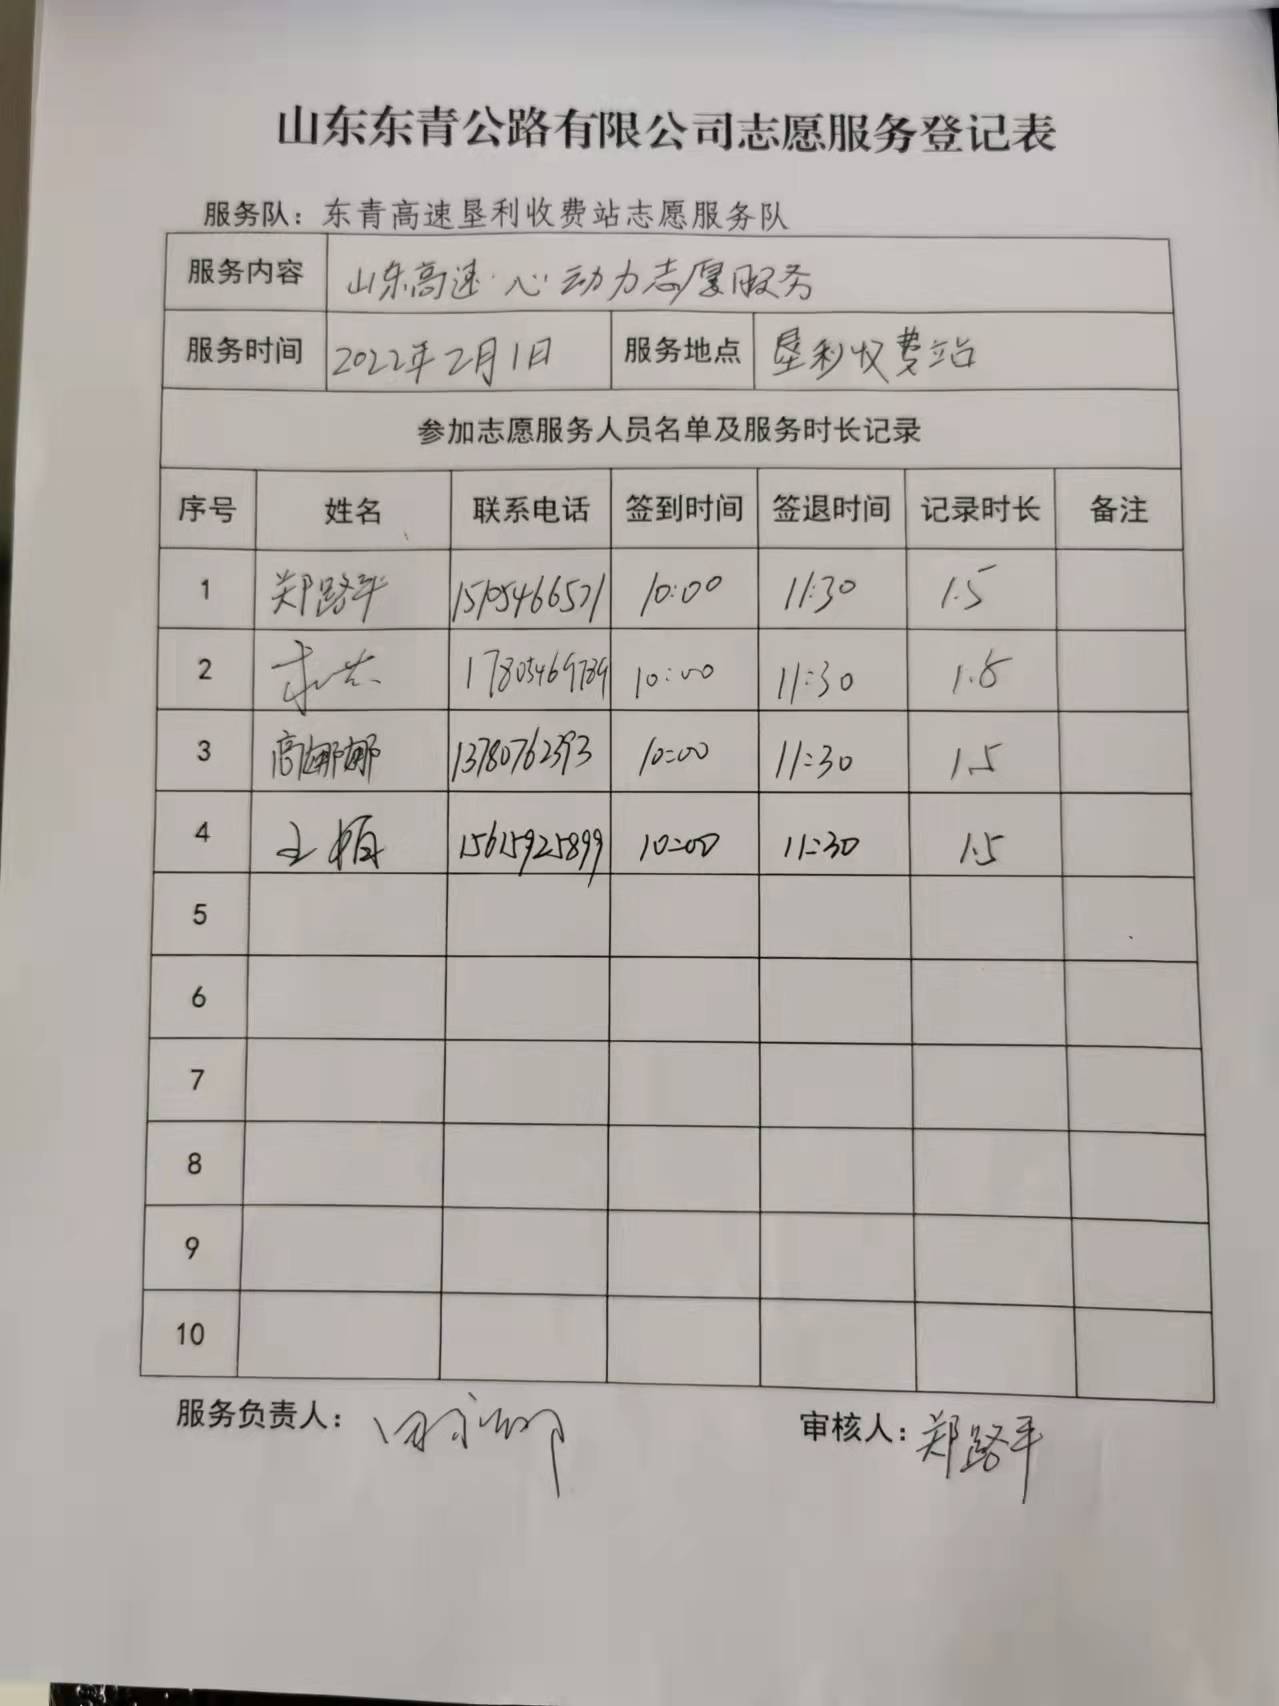 山东东青公路有限公司志愿服务登记表
服务队：东青高速垦利收费站志愿服务队
服务内容 山东高速·心动力志愿服务
服务时间 2022年2月1日 服务地点 垦利收费站
参加志愿服务人员名单及服务时长记录
序号 姓名 联系电话 签到时间 签退时间 记录时长 备注
1 郑路平 15105466571 10:00 11:30 1.5
2 17805469789 10:00 11:30 1.5
3 高娜娜 13780762393 10:00 11:30 1.5
4 王植 15615925899 10:00 11:30 1.5
5
6
7
8
9
10
服务负责人： 审核人：郑路平